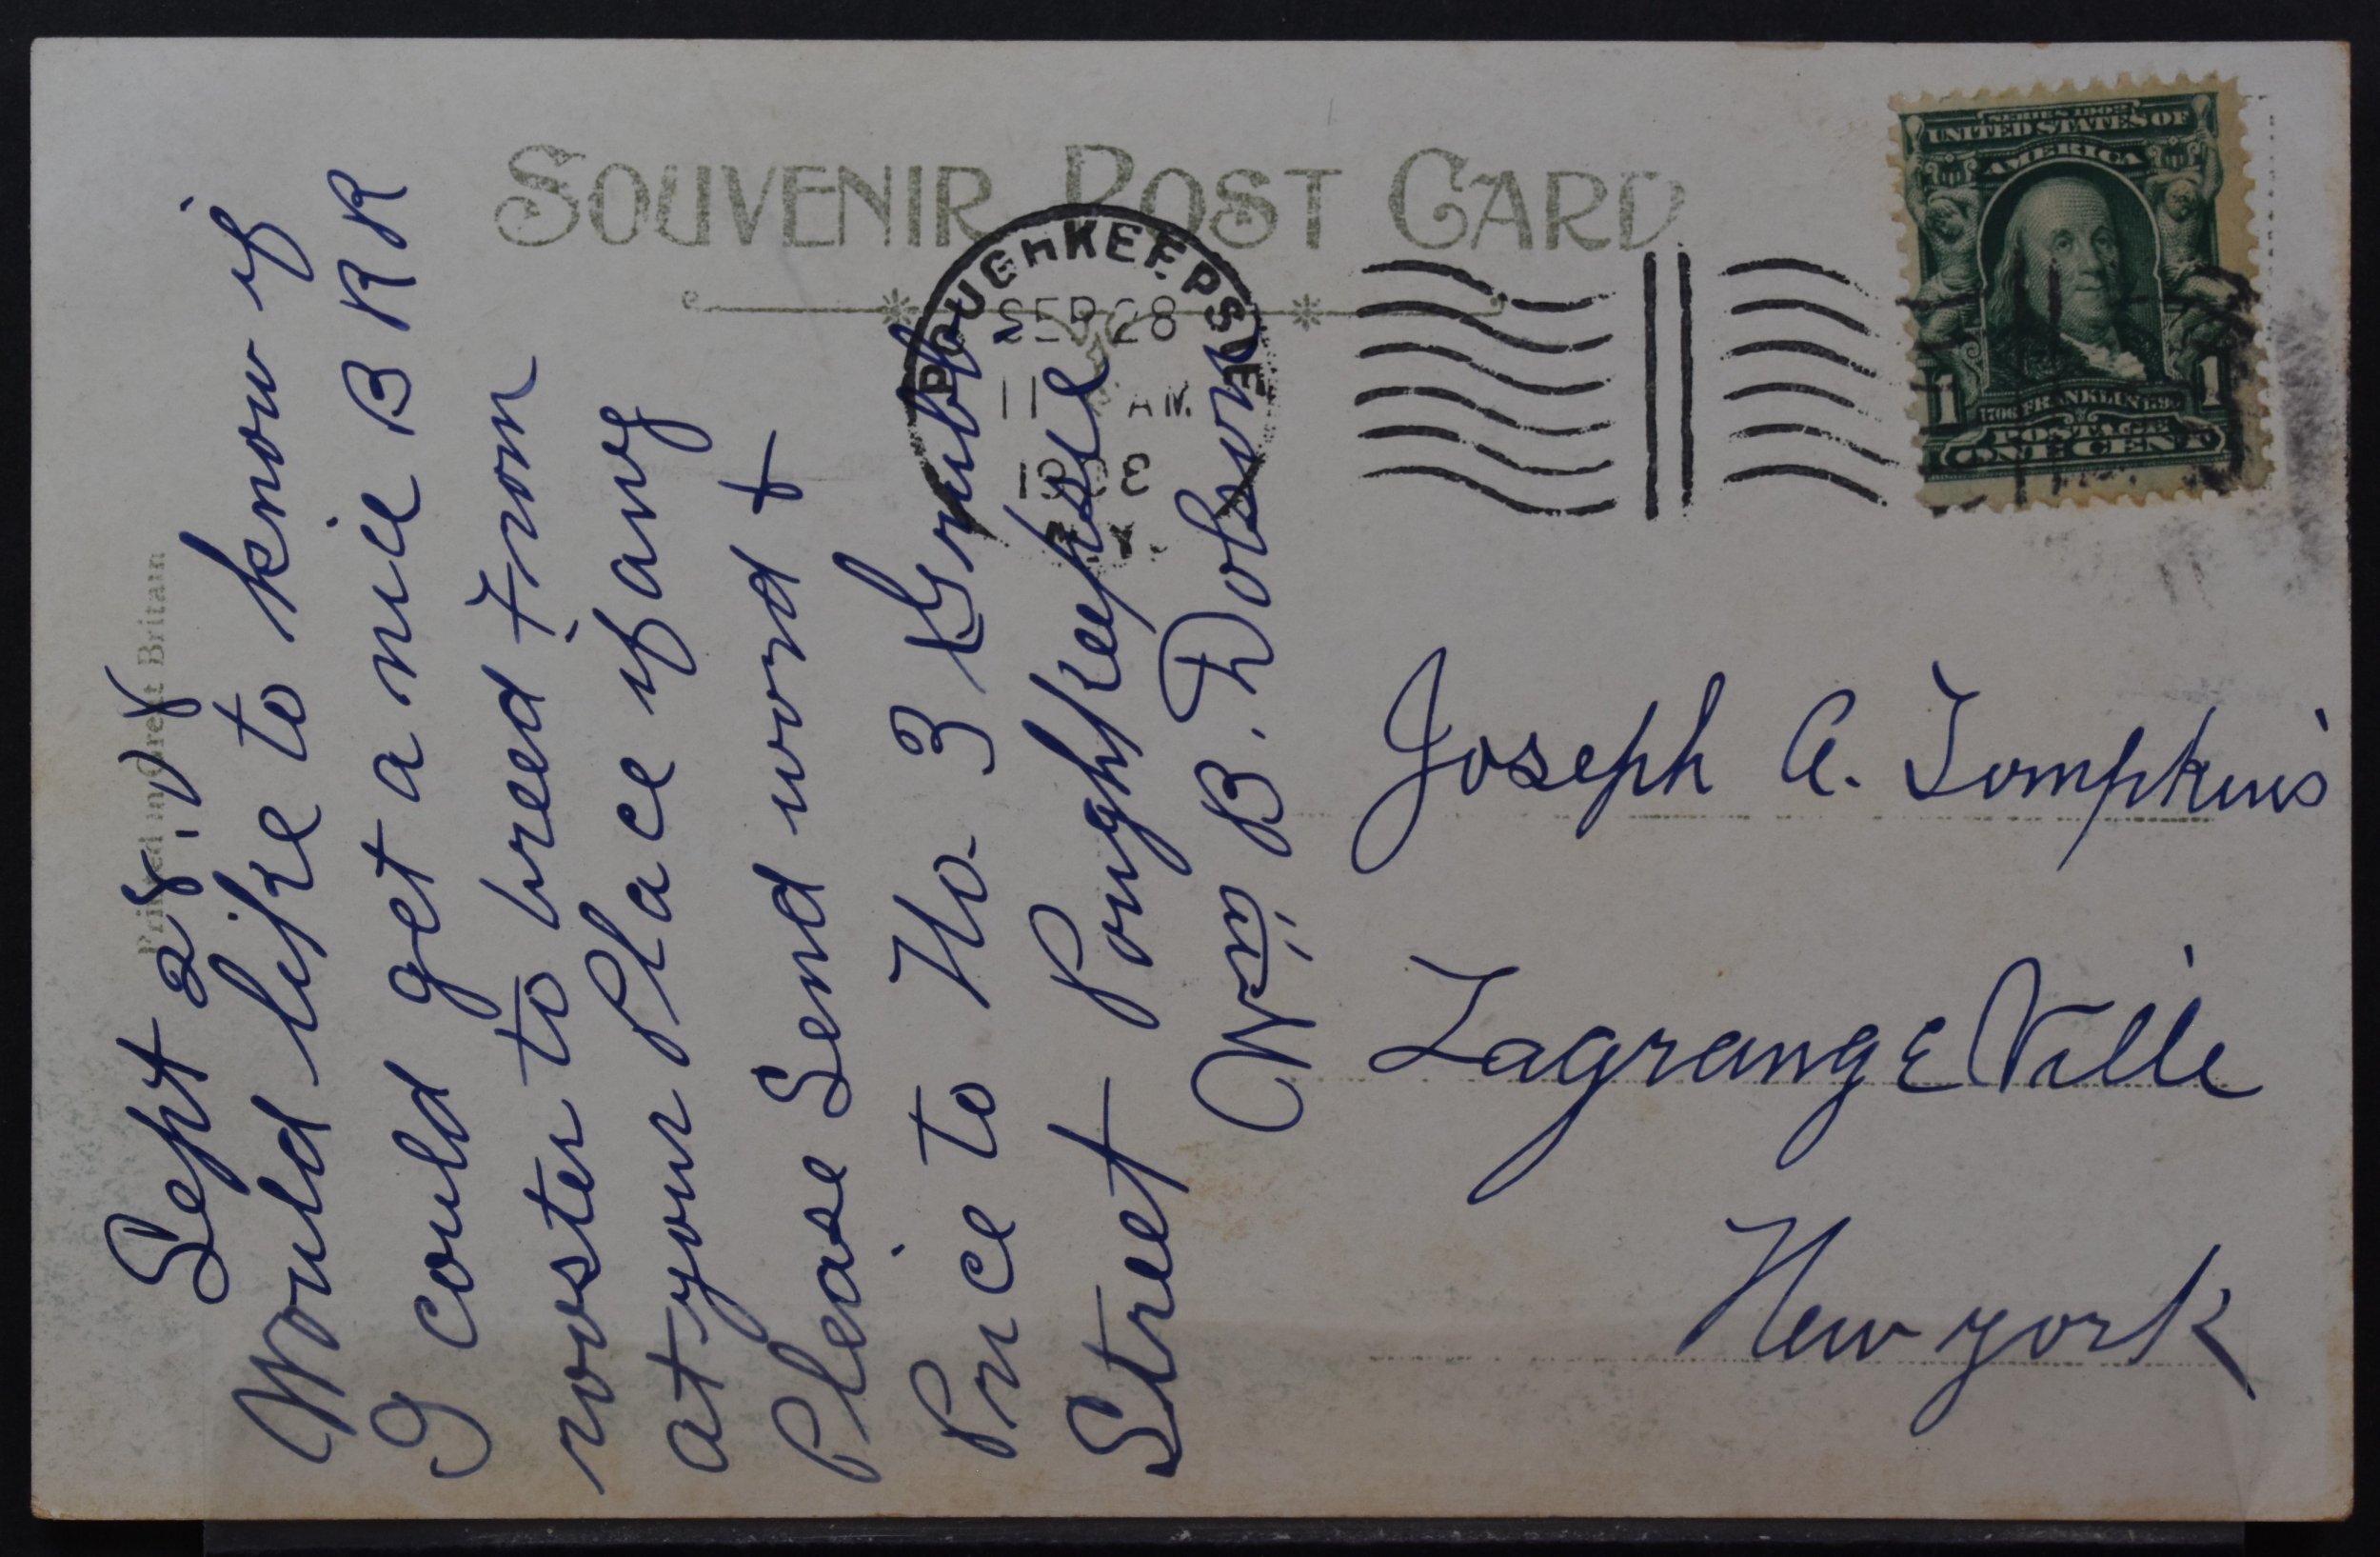 SOUVENIR POST CARD
POUGHKEEPSIE
SEP 28
11 AM
SERIES 1902
UNITED STATES OF
AMERICA
1706 FRANKLIN 1790
POSTAGE
ONE CENT
1 1
Printed in Great Britain
Sept 28.
Would like to know if
I could get a nice B R R
rooster to breed From
at your Place if any
Please Send word &
Price to No- 3 Grubb
Street Poughkeepsie
Wm B. Dobson
Joseph A. Tompkins
Lagrange Ville
New york